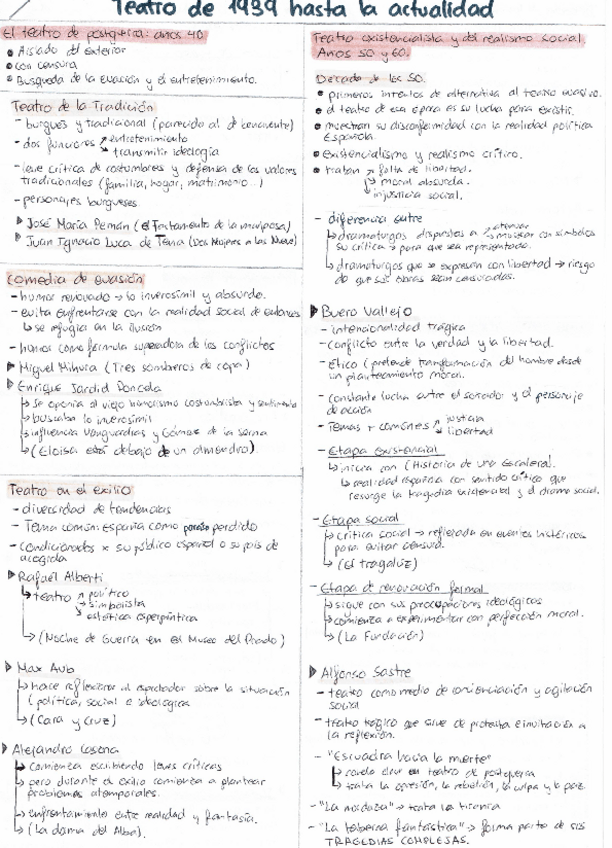 Teatro de 1939 hasta la actualidad
El teatro de posguerra: años 40
• Aislado del exterior
• con censura
• Busqueda de la evasión y el entretenimiento.
Teatro de la Tradición
- burgués y tradicional (parecido al de benavente)
- dos funciones ↗ entretenimiento
↘ transmitir ideología
- leve crítica de costumbres y defensa de los valores
tradicionales (familia, hogar, matrimonio...)
- personajes burgueses
▶ José María Pemán (el Testamento de la mariposa)
▶ Juan Ignacio Luca de Tena (Dos Mujeres a las Nueve)
Comedia de evasión
- humor renovado → lo inverosímil y absurdo.
- evita enfrentarse con la realidad social de entonces
↳ se refugia en la ilusión
- humor como fórmula superadora de los conflictos
▶ Miguel Mihura (Tres sombreros de copa)
▶ Enrique Jardiel Poncela
↳ Se oponía al viejo humorismo costumbrista y
↳ buscaba lo inverosímil
↳ influencia vanguardias y Gómez de la Serna
↳ (Eloísa está debajo de un almendro)
Teatro en el exilio
- diversidad de tendencias
- Tema común: España como paraíso perdido
- condicionados x su público español o su país de
acogida
▶ Rafael Alberti
↳ teatro ↗ político
→ simbolista
↘ estética esperpéntica
↳ (Noche de Guerra en el Museo del Prado)
▶ Max Aub
↳ Hace reflexionar al espectador sobre la situación
(política, social e ideológica
↳ (Cara y Cruz)
▶ Alejandro Casona
↳ Comienza escribiendo leves críticas
↳ pero durante el exilio comienza a plantear
problemas atemporales.
↳ enfrentamiento entre realidad y fantasía.
↳ (La dama del Alba).
Teatro existencialista y del realismo social.
Años 50 y 60.
Década de los 50.
• primeros intentos de alternativa al teatro evasivo.
• el teatro de esa época es su lucha para existir.
• muestran su disconformidad con la realidad política
Española.
• existencialismo y realismo crítico.
• tratan ↗ falta de libertad.
↳ moral absurda.
↳ injusticia social.
- diferencia entre
↳ dramaturgos dispuestos a ↗ atenuar
con símbolos
su crítica → para que sea representado.
↳ dramaturgos que se expresan con libertad → riesgo
de que sus obras sean censuradas.
▶ Buero Vallejo
- intencionalidad trágica
- conflicto entre la verdad y la libertad.
- Ético (pretende transformación del hombre desde
un planteamiento moral.
- constante lucha entre el soñador y el personaje
de acción
- Temas + comunes ↗ justicia
↘ libertad
- Etapa existencial
↳ inicia con (Historia de una Escalera).
↳ realidad española con sentido crítico que
resurge la tragedia existencial y el drama social.
- Etapa social
↳ crítica social → reflejada en eventos históricos
para evitar censura.
↳ (el tragaluz)
- Etapa de renovación formal
↳ sigue con sus preocupaciones ideológicas
↳ comienza a experimentar con perfección moral.
↳ (La Fundación)
▶ Alfonso Sastre
- teatro como medio de concienciación y agitación
social
- teatro trágico que sirve de protesta e invitación a
la reflexión.
- "Escuadra hacia la muerte"
↳ clave en teatro de postguerra
↳ trata la opresión, la rebelión, la culpa y la paz.
- "La mordaza" → trata la tiranía
- "La taberna fantástica" → forma parte de sus
TRAGEDIAS COMPLEJAS.